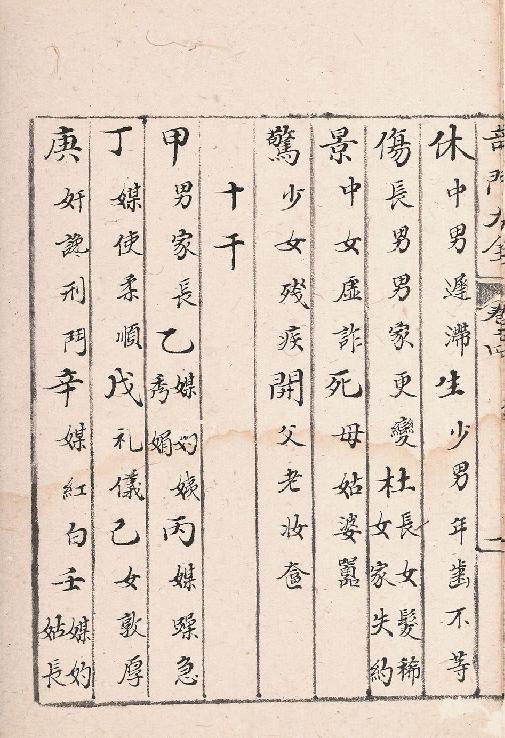 門大全
休中男遲滯生少男年齒不等
傷長男男家更變杜長女髮稀女家失約
景中女虛詐死母姑婆嚚
驚少女残疾開父老妝奩
十干
甲男家長乙媒妁姨秀媚丙媒躁急
丁媒使柔順戊礼儀己女敦厚
庚奸讒刑鬥辛媒紅白壬媒妁姑長